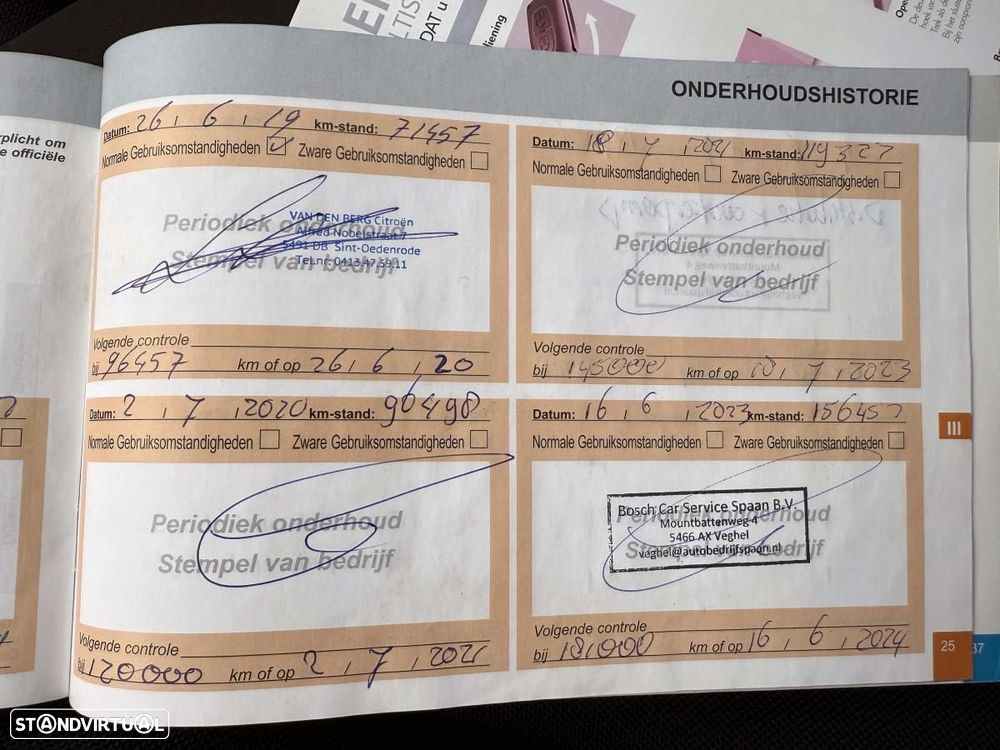 DAT u
diening
ONDERHOUDSHISTORIE
plicht om
e officiële
Datum: 26, 6, 19 km-stand: 71457
Normale Gebruiksomstandigheden Zware Gebruiksomstandigheden
Periodiek onderhoud
Stempel van bedrijf
VAN DEN BERG Citroën
Alfred Nobelstraat 7
5491 DB Sint-Oedenrode
Tel.nr: 0413.47.59.11
Volgende controle
bij 96457 km of op 26, 6, 20
Datum: 18, 7, 2021 km-stand: 119327
Normale Gebruiksomstandigheden Zware Gebruiksomstandigheden
Periodiek onderhoud
Stempel van bedrijf
Volgende controle
bij 145000 km of op 18, 7, 2023
Datum: 2, 7, 2020 km-stand: 96498
Normale Gebruiksomstandigheden Zware Gebruiksomstandigheden
Periodiek onderhoud
Stempel van bedrijf
Volgende controle
bij 120000 km of op 2, 7, 2021
Datum: 16, 6, 2023 km-stand: 156457
Normale Gebruiksomstandigheden Zware Gebruiksomstandigheden
Periodiek onderhoud
Stempel van bedrijf
Bosch Car Service Spaan B.V.
Mountbattenweg 4
5466 AX Veghel
veghel@autobedrijfspaan.nl
Volgende controle
bij 181000 km of op 16, 6, 2024
III
25
37
STANDVIRTUAL